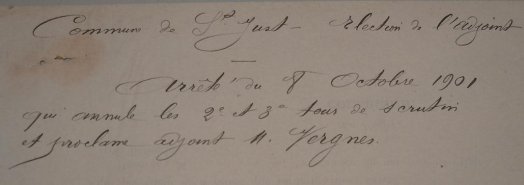 Commune de St Just - Election de l'adjoint
Arrêté du 8 Octobre 1901
qui annule les 2e et 3e tour de scrutin
et proclame adjoint M. Vergnes.